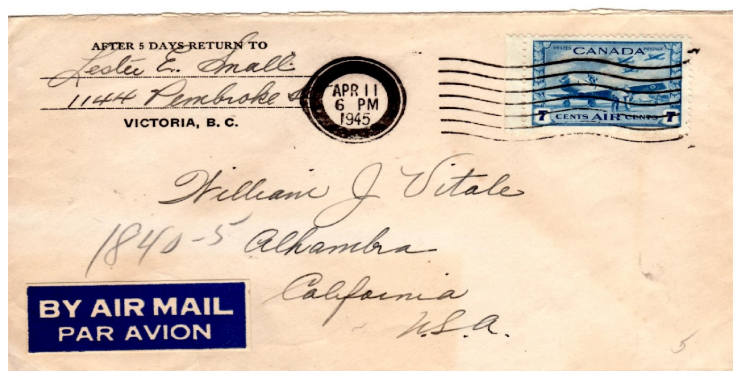 AFTER 5 DAYS RETURN TO
Lester E. Small
1144 Pembroke St
VICTORIA, B. C.
APR 11
6 PM
1945
POSTES CANADA POSTAGE
7 CENTS AIR CENTS 7
William J Vitale
1840-5 Alhambra
California
U.S.A.
BY AIR MAIL
PAR AVION
5